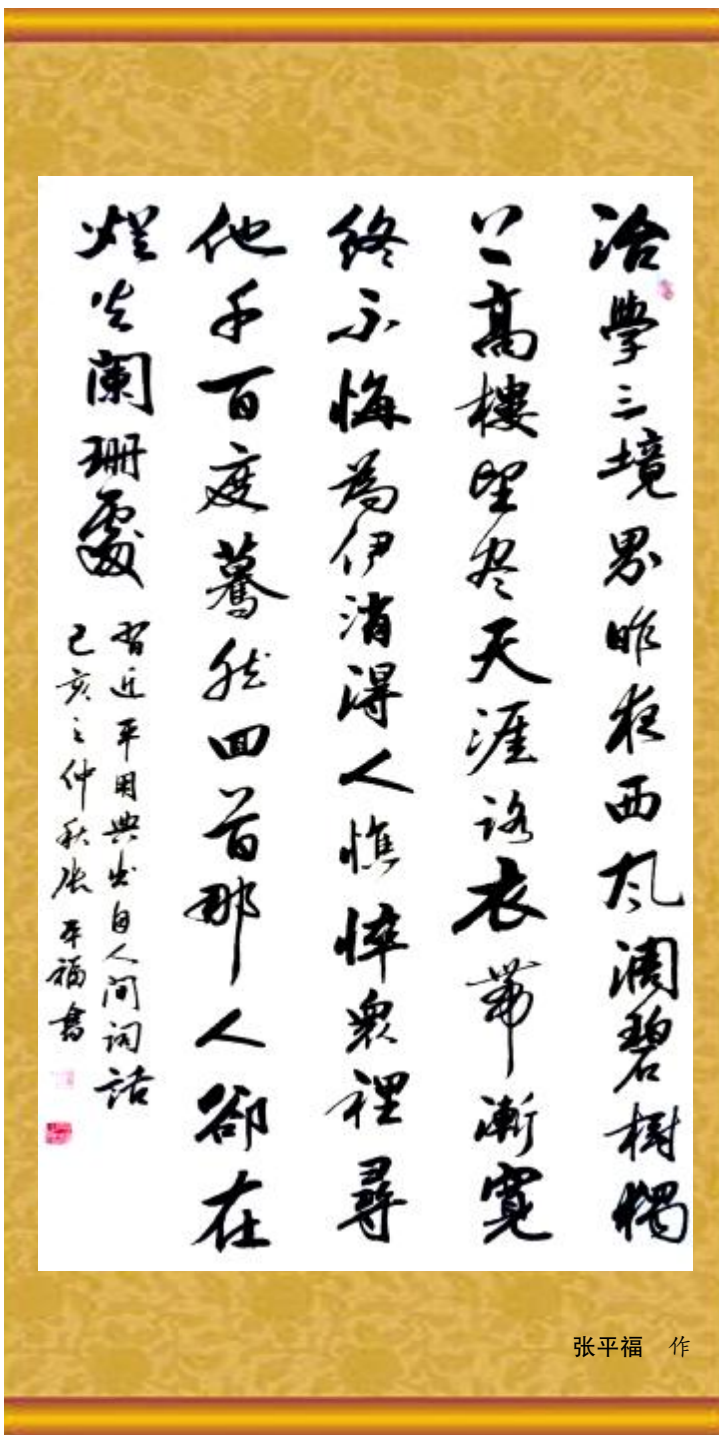 治學三境界昨夜西风凋碧樹獨
上高樓望尽天涯路衣帶漸寬
終不悔為伊消得人憔悴衆裡尋
他千百度驀然回首那人卻在
燈火闌珊處
習近平用典出自人间词話
己亥之仲秋张平福書
张平福 作